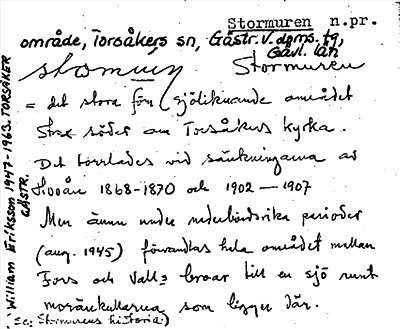 Stormuren n.pr.
område, Torsåkers sn, Gästr. V. dpms. tg,
Gävl. län
Stormuren
= det stora förr sjöliknande området
Strax söder om Torsåkers kyrka.
Det torrlades vid sänkningarna av
Hoån 1868-1870 och 1902-1907
Men ännu under nederbördsrika perioder
(aug. 1945) förvandlas hela området mellan
Fors och Valls broar till en sjö runt
moränkullarna som ligger där.
Se: Stormurens historia:)
William Eriksson 1947-1963. TORSÅKER
GÄSTR.